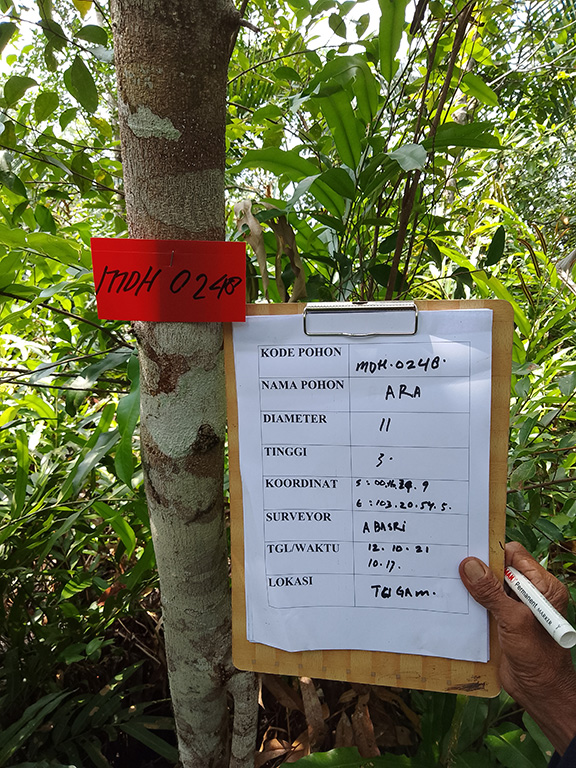 MDH 0248
KODE POHON MDH.0248.
NAMA POHON ARA
DIAMETER 11
TINGGI 3.
KOORDINAT
6 : 103.20.54.5.
SURVEYOR A BASRI
TGL/WAKTU 12.10.21
10.17.
LOKASI
Permanent MARKER